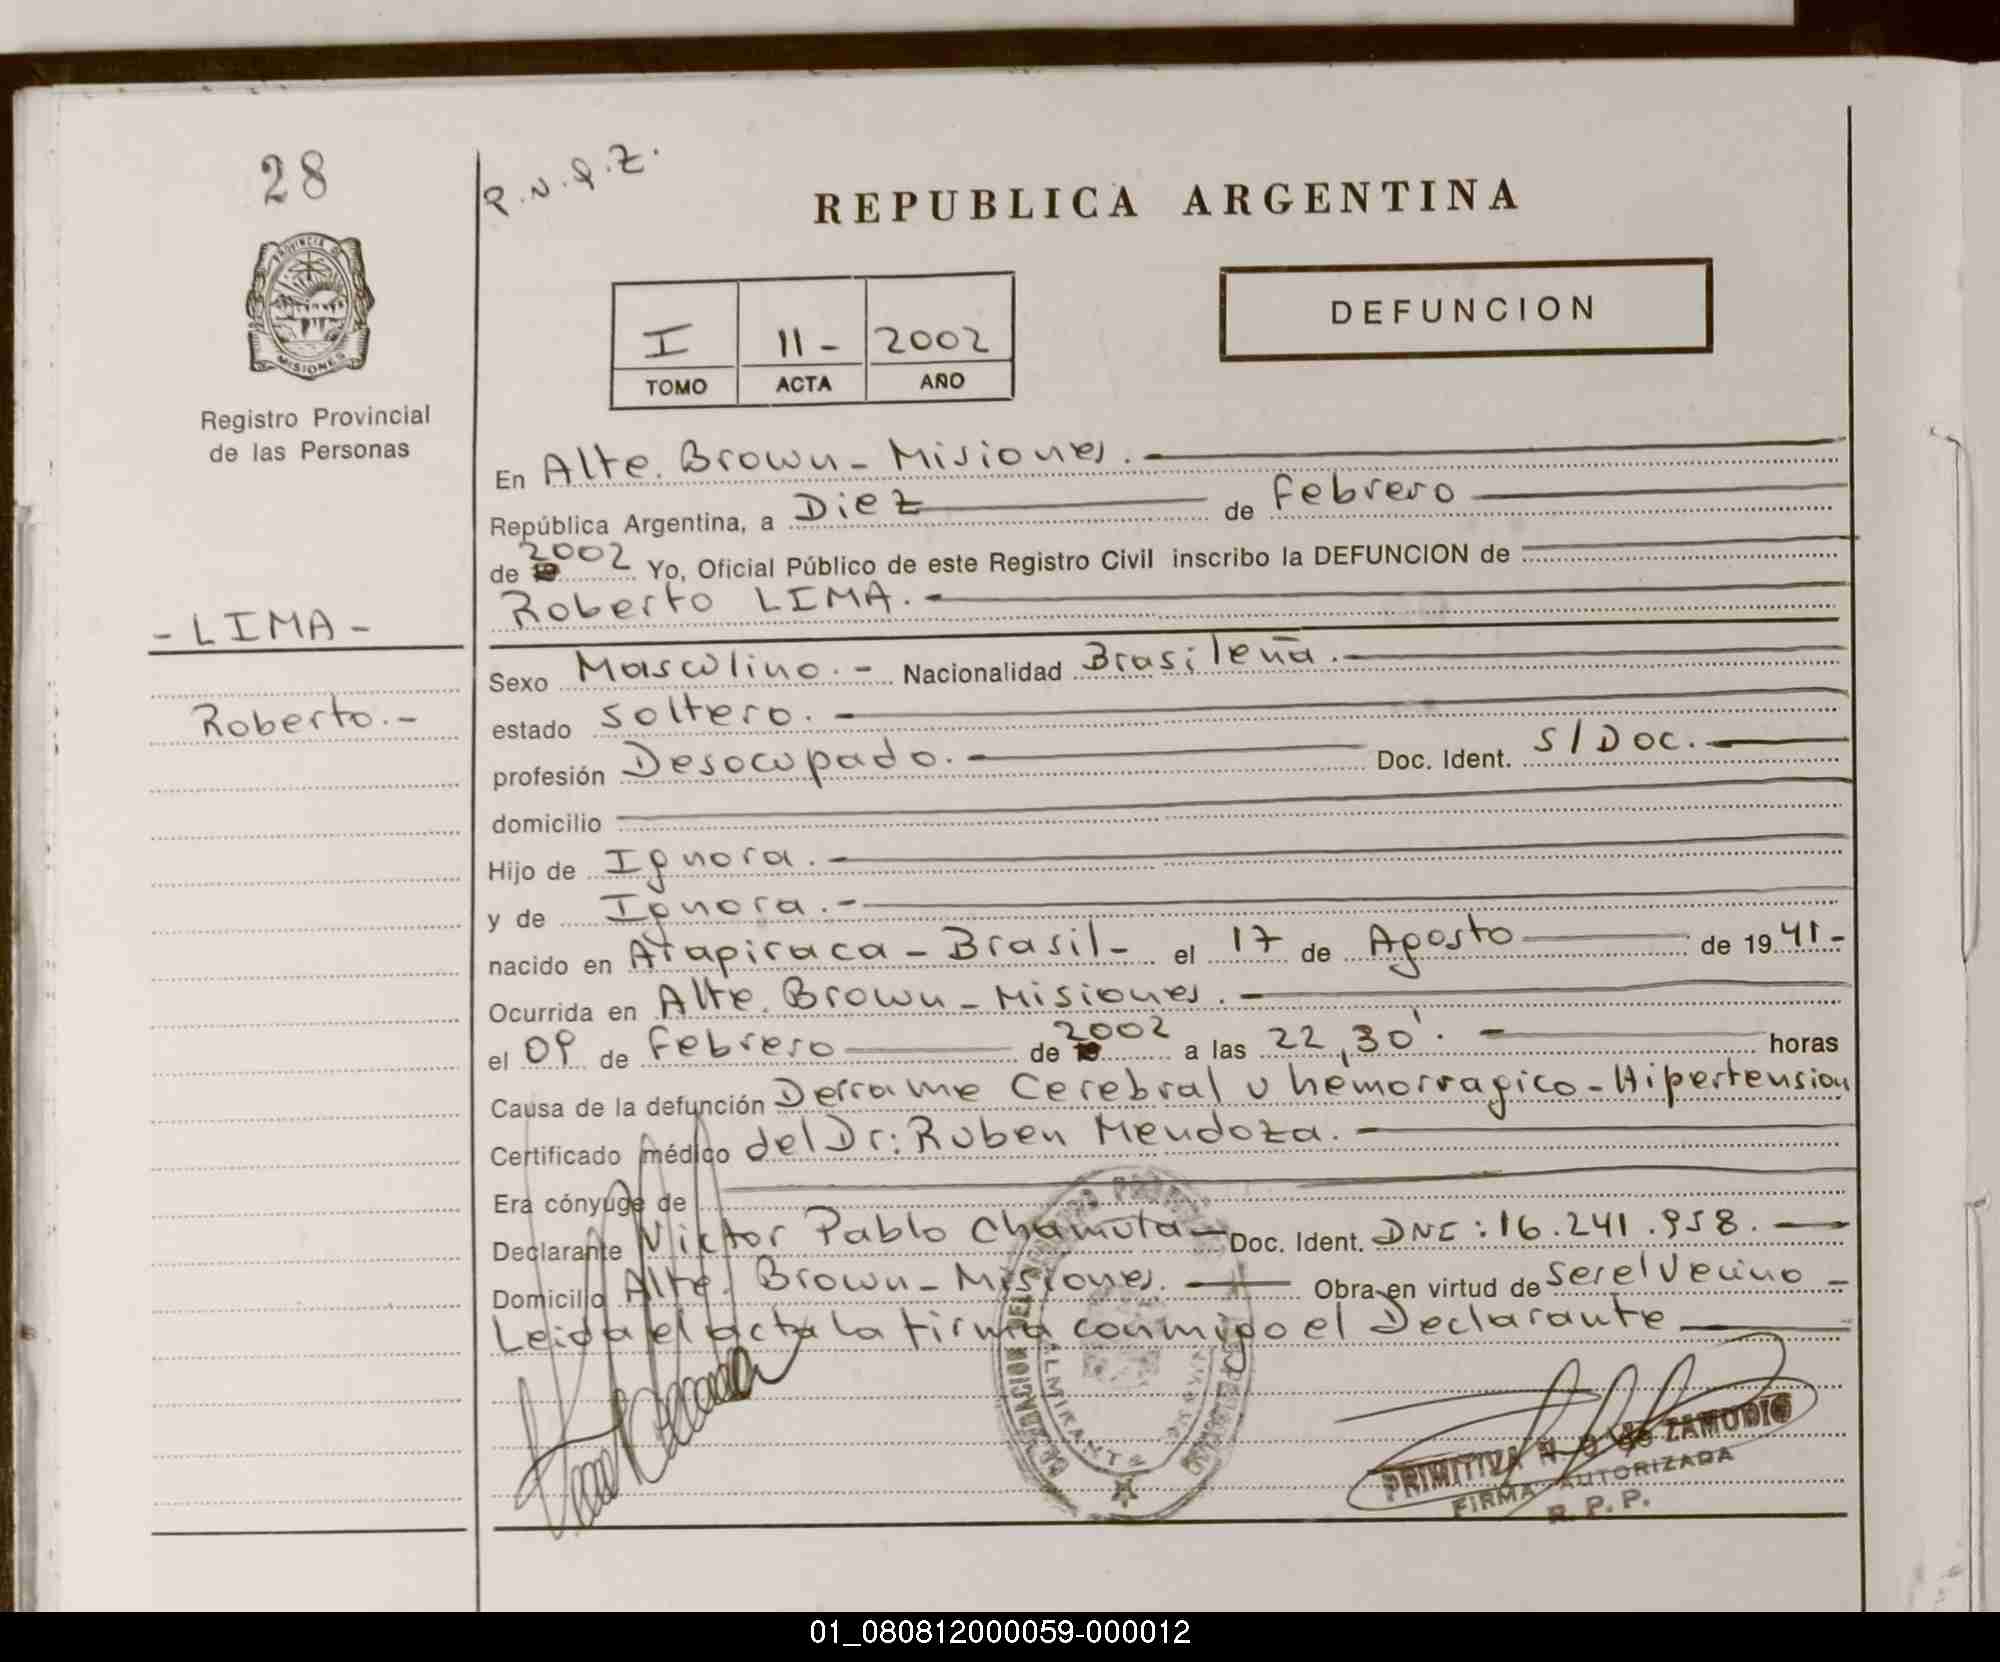 28
P.N.Q.Z.
REPUBLICA ARGENTINA
PROVINCIA DE
MISIONES
DEFUNCION
I 11- 2002
TOMO ACTA AÑO
Registro Provincial
de las Personas
En Alte. Brown - Misiones.
República Argentina, a Diez de Febrero
de 2002 Yo, Oficial Público de este Registro Civil inscribo la DEFUNCION de
Roberto LIMA.-
- LIMA -
Roberto.-
Sexo Masculino.- Nacionalidad Brasileña.
estado Soltero.-
profesión Desocupado.- Doc. Ident. S/Doc.-
domicilio
Hijo de Ignora.-
y de Ignora.-
nacido en Atapiraca - Brasil - el 17 de Agosto de 1941-
Ocurrida en Alte. Brown - Misiones.-
el 09 de Febrero de 2002 a las 22,30'.- horas
Causa de la defunción Derrame Cerebral v hemorragico - Hipertension
Certificado médico del Dr: Ruben Mendoza.-
Era cónyuge de
Declarante Victor Pablo Chamula - Doc. Ident. DNI: 16.241.958.-
Domicilio Alte. Brown - Misiones. Obra en virtud de ser el Vecino -
Leida el acta la firma conmigo el Declarante
ALMIRANTE
PRIMITIVA N. de ZAMUDIO
FIRMA AUTORIZADA
R. P. P.
01_080812000059-000012